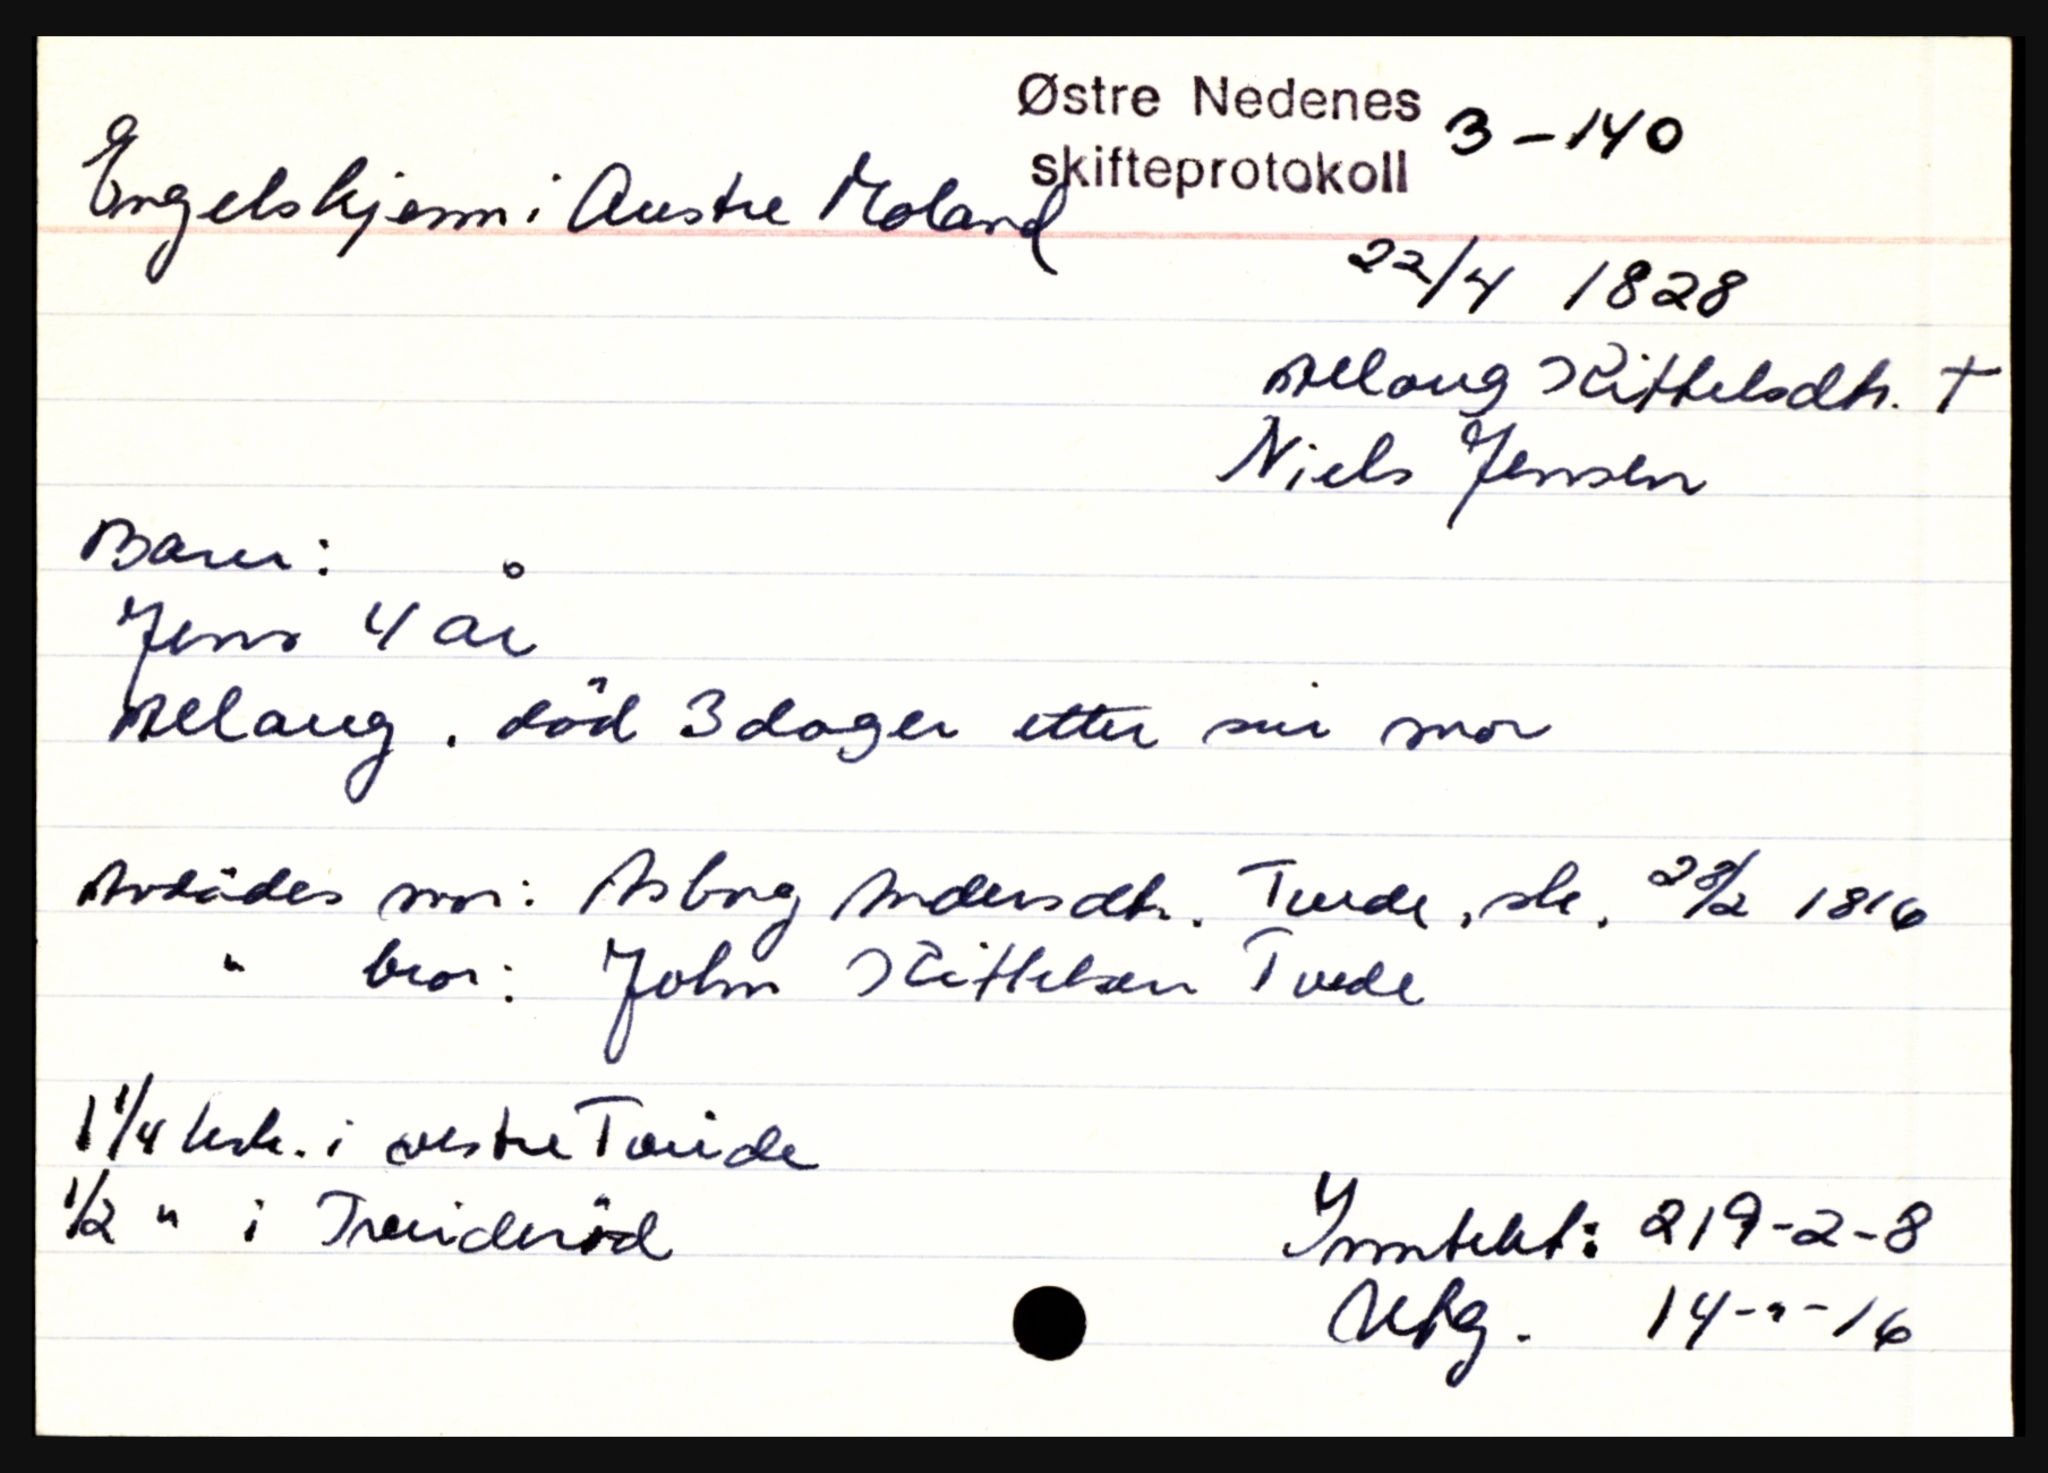 Østre Nedenes
skifteprotokoll 3-140
Engelskjønn i Austre Moland
22/4 1828
Aslaug Kittelsdtr. †
Niels Jensen
Barn:
Jens 4 år
Aslaug. död 3 dager etter sin mor
Avdødes mor: Asborg Andersdtr. Tvede, sk. 28/2 1816
" bror: John Kittelsen Tvede
1 1/4 hsk. i vestre Tveide
1/2 " i Tveideröd
Inntekt: 219-2-8
Utg. 14-"-16